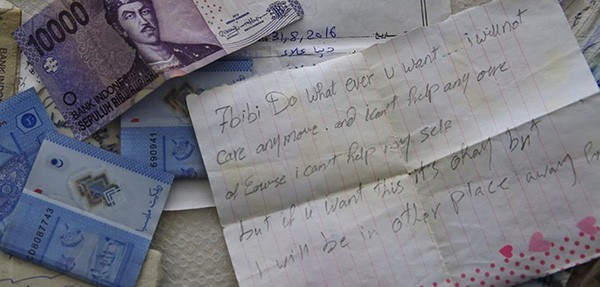 10000
BANK INDONESIA
SEPULUH RIBU
31,8,2016
690941
08087743
7bibi Do what ever u want... i will not
care anymore. and i can't help any one
of Course i can't help my self
but if u want this it's okay but
i will be in other place away